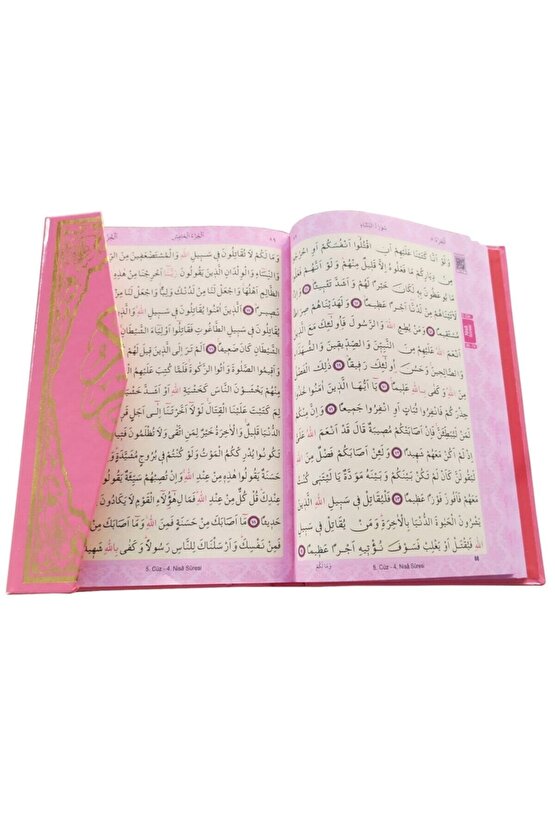 اَلْجُزْءُ ٥ سُورَةُ النِّسَاءِ
وَلَوْ اَنَّا كَتَبْنَا عَلَيْهِمْ اَنِ اقْتُلُٓوا اَنْفُسَكُمْ اَوِ
دِيَارِكُمْ مَا فَعَلُوهُ اِلَّا قَلِيلٌ مِنْهُمْ وَلَوْ اَنَّهُمْ
يُوعَظُونَ بِهِ لَكَانَ خَيْرًا لَهُمْ وَاَشَدَّ تَثْبِيتًا ﴿٦٦﴾
لَاٰتَيْنَاهُمْ مِنْ لَدُنَّٓا اَجْرًا عَظِيمًا ﴿٦٧﴾ وَلَهَدَيْنَاهُمْ
مُسْتَقِيمًا ﴿٦٨﴾ وَمَنْ يُطِعِ اللّٰهَ وَالرَّسُولَ فَاُو۬لٰٓئِكَ مَعَ الَّذِينَ
اَنْعَمَ اللّٰهُ عَلَيْهِمْ مِنَ النَّبِيّنَ وَالصِّدِّيقِينَ وَالشُّهَدَٓاءِ
وَالصَّالِحِينَ وَحَسُنَ اُو۬لٰٓئِكَ رَفِيقًا ﴿٦٩﴾ ذٰلِكَ الْفَضْلُ
مِنَ اللّٰهِ وَكَفٰى بِاللّٰهِ عَلِيمًا ﴿٧٠﴾ يَٓا اَيُّهَا الَّذِينَ اٰمَنُوا خُذُوا
حِذْرَكُمْ فَانْفِرُوا ثُبَاتٍ اَوِ انْفِرُوا جَمِيعًا ﴿٧١﴾ وَاِنَّ مِنْكُمْ
لَمَنْ لَيُبَطِّئَنَّ فَاِنْ اَصَابَتْكُمْ مُصِيبَةٌ قَالَ قَدْ اَنْعَمَ اللّٰهُ
عَلَيَّ اِذْ لَمْ اَكُنْ مَعَهُمْ شَهِيدًا ﴿٧٢﴾ وَلَئِنْ اَصَابَكُمْ فَضْلٌ مِنَ
اللّٰهِ لَيَقُولَنَّ كَاَنْ لَمْ تَكُنْ بَيْنَكُمْ وَبَيْنَهُ مَوَدَّةٌ يَا لَيْتَنِي كُنْتُ
مَعَهُمْ فَاَفُوزَ فَوْزًا عَظِيمًا ﴿٧٣﴾ فَلْيُقَاتِلْ فِي سَبِيلِ اللّٰهِ الَّذِينَ
يَشْرُونَ الْحَيٰوةَ الدُّنْيَا بِالْاٰخِرَةِ وَمَنْ يُقَاتِلْ فِي سَبِيلِ
اللّٰهِ فَيُقْتَلْ اَوْ يَغْلِبْ فَسَوْفَ نُؤْتِيهِ اَجْرًا عَظِيمًا ﴿٧٤﴾
وَمَا لَكُمْ 5. Cüz - 4. Nisâ Sûresi 88
اَلْجُزْءُ الْخَامِسُ ٨٩
وَمَا لَكُمْ لَا تُقَاتِلُونَ فِي سَبِيلِ اللّٰهِ وَالْمُسْتَضْعَفِينَ مِنَ
وَالنِّسَٓاءِ وَالْوِلْدَانِ الَّذِينَ يَقُولُونَ رَبَّنَٓا اَخْرِجْنَا مِنْ هٰذِهِ
الظَّالِمِ اَهْلُهَا وَاجْعَلْ لَنَا مِنْ لَدُنْكَ وَلِيًّا وَاجْعَلْ لَنَا مِنْ
نَصِيرًا ﴿٧٥﴾ اَلَّذِينَ اٰمَنُوا يُقَاتِلُونَ فِي سَبِيلِ اللّٰهِ وَالَّذِينَ
يُقَاتِلُونَ فِي سَبِيلِ الطَّاغُوتِ فَقَاتِلُٓوا اَوْلِيَٓاءَ الشَّيْطَانِ
الشَّيْطَانِ كَانَ ضَعِيفًا ﴿٧٦﴾ اَلَمْ تَرَ اِلَى الَّذِينَ قِيلَ لَهُمْ
وَاَقِيمُوا الصَّلٰوةَ وَاٰتُوا الزَّكٰوةَ فَلَمَّا كُتِبَ عَلَيْهِمُ
مِنْهُمْ يَخْشَوْنَ النَّاسَ كَخَشْيَةِ اللّٰهِ اَوْ اَشَدَّ
لِمَ كَتَبْتَ عَلَيْنَا الْقِتَالَ لَوْلَٓا اَخَّرْتَنَٓا اِلٰٓى اَجَلٍ
الدُّنْيَا قَلِيلٌ وَالْاٰخِرَةُ خَيْرٌ لِمَنِ اتَّقٰى وَلَا تُظْلَمُونَ
تَكُونُوا يُدْرِكْكُمُ الْمَوْتُ وَلَوْ كُنْتُمْ فِي بُرُوجٍ مُشَيَّدَةٍ
حَسَنَةٌ يَقُولُوا هٰذِهِ مِنْ عِنْدِ اللّٰهِ وَاِنْ تُصِبْهُمْ سَيِّئَةٌ يَقُولُوا
عِنْدِكَ قُلْ كُلٌّ مِنْ عِنْدِ اللّٰهِ فَمَالِ هٰٓؤُ۬لَٓاءِ الْقَوْمِ لَا يَكَادُونَ
حَدِيثًا ﴿٧٨﴾ مَٓا اَصَابَكَ مِنْ حَسَنَةٍ فَمِنَ اللّٰهِ وَمَٓا اَصَابَكَ مِنْ
فَمِنْ نَفْسِكَ وَاَرْسَلْنَاكَ لِلنَّاسِ رَسُولًا وَكَفٰى بِاللّٰهِ
5. Cüz - 4. Nisâ Sûresi